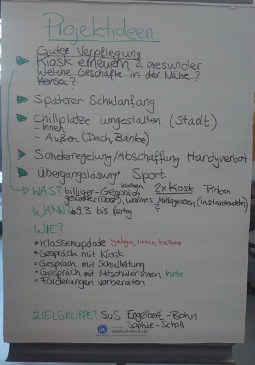 Projektideen
Gutes Verpflegung
Kiosk erneuern & gesünder
Welche Geschäfte in der Nähe?
Mensa?
Späterer Schulanfang
Chillplätze umgestalten (Stadt)
- Innen
- Außen (Dach, Bänke)
Sonderregelung/Abschaffung Handyverbot
Übergangslösung Sport
WAS? billiger - Gespräch 2x Kiosk
gesünder (Obst), warmes Mittagessen
WANN? bis fertig
WIE?
Klassenupdate
Gespräch mit Kiosk
Gespräch mit Schulleitung
Gespräch mit Mitschüler:innen
Forderungen vorbereiten
ZIELGRUPPE? SuS Engelbert-Bohn
Sophie-Scholl